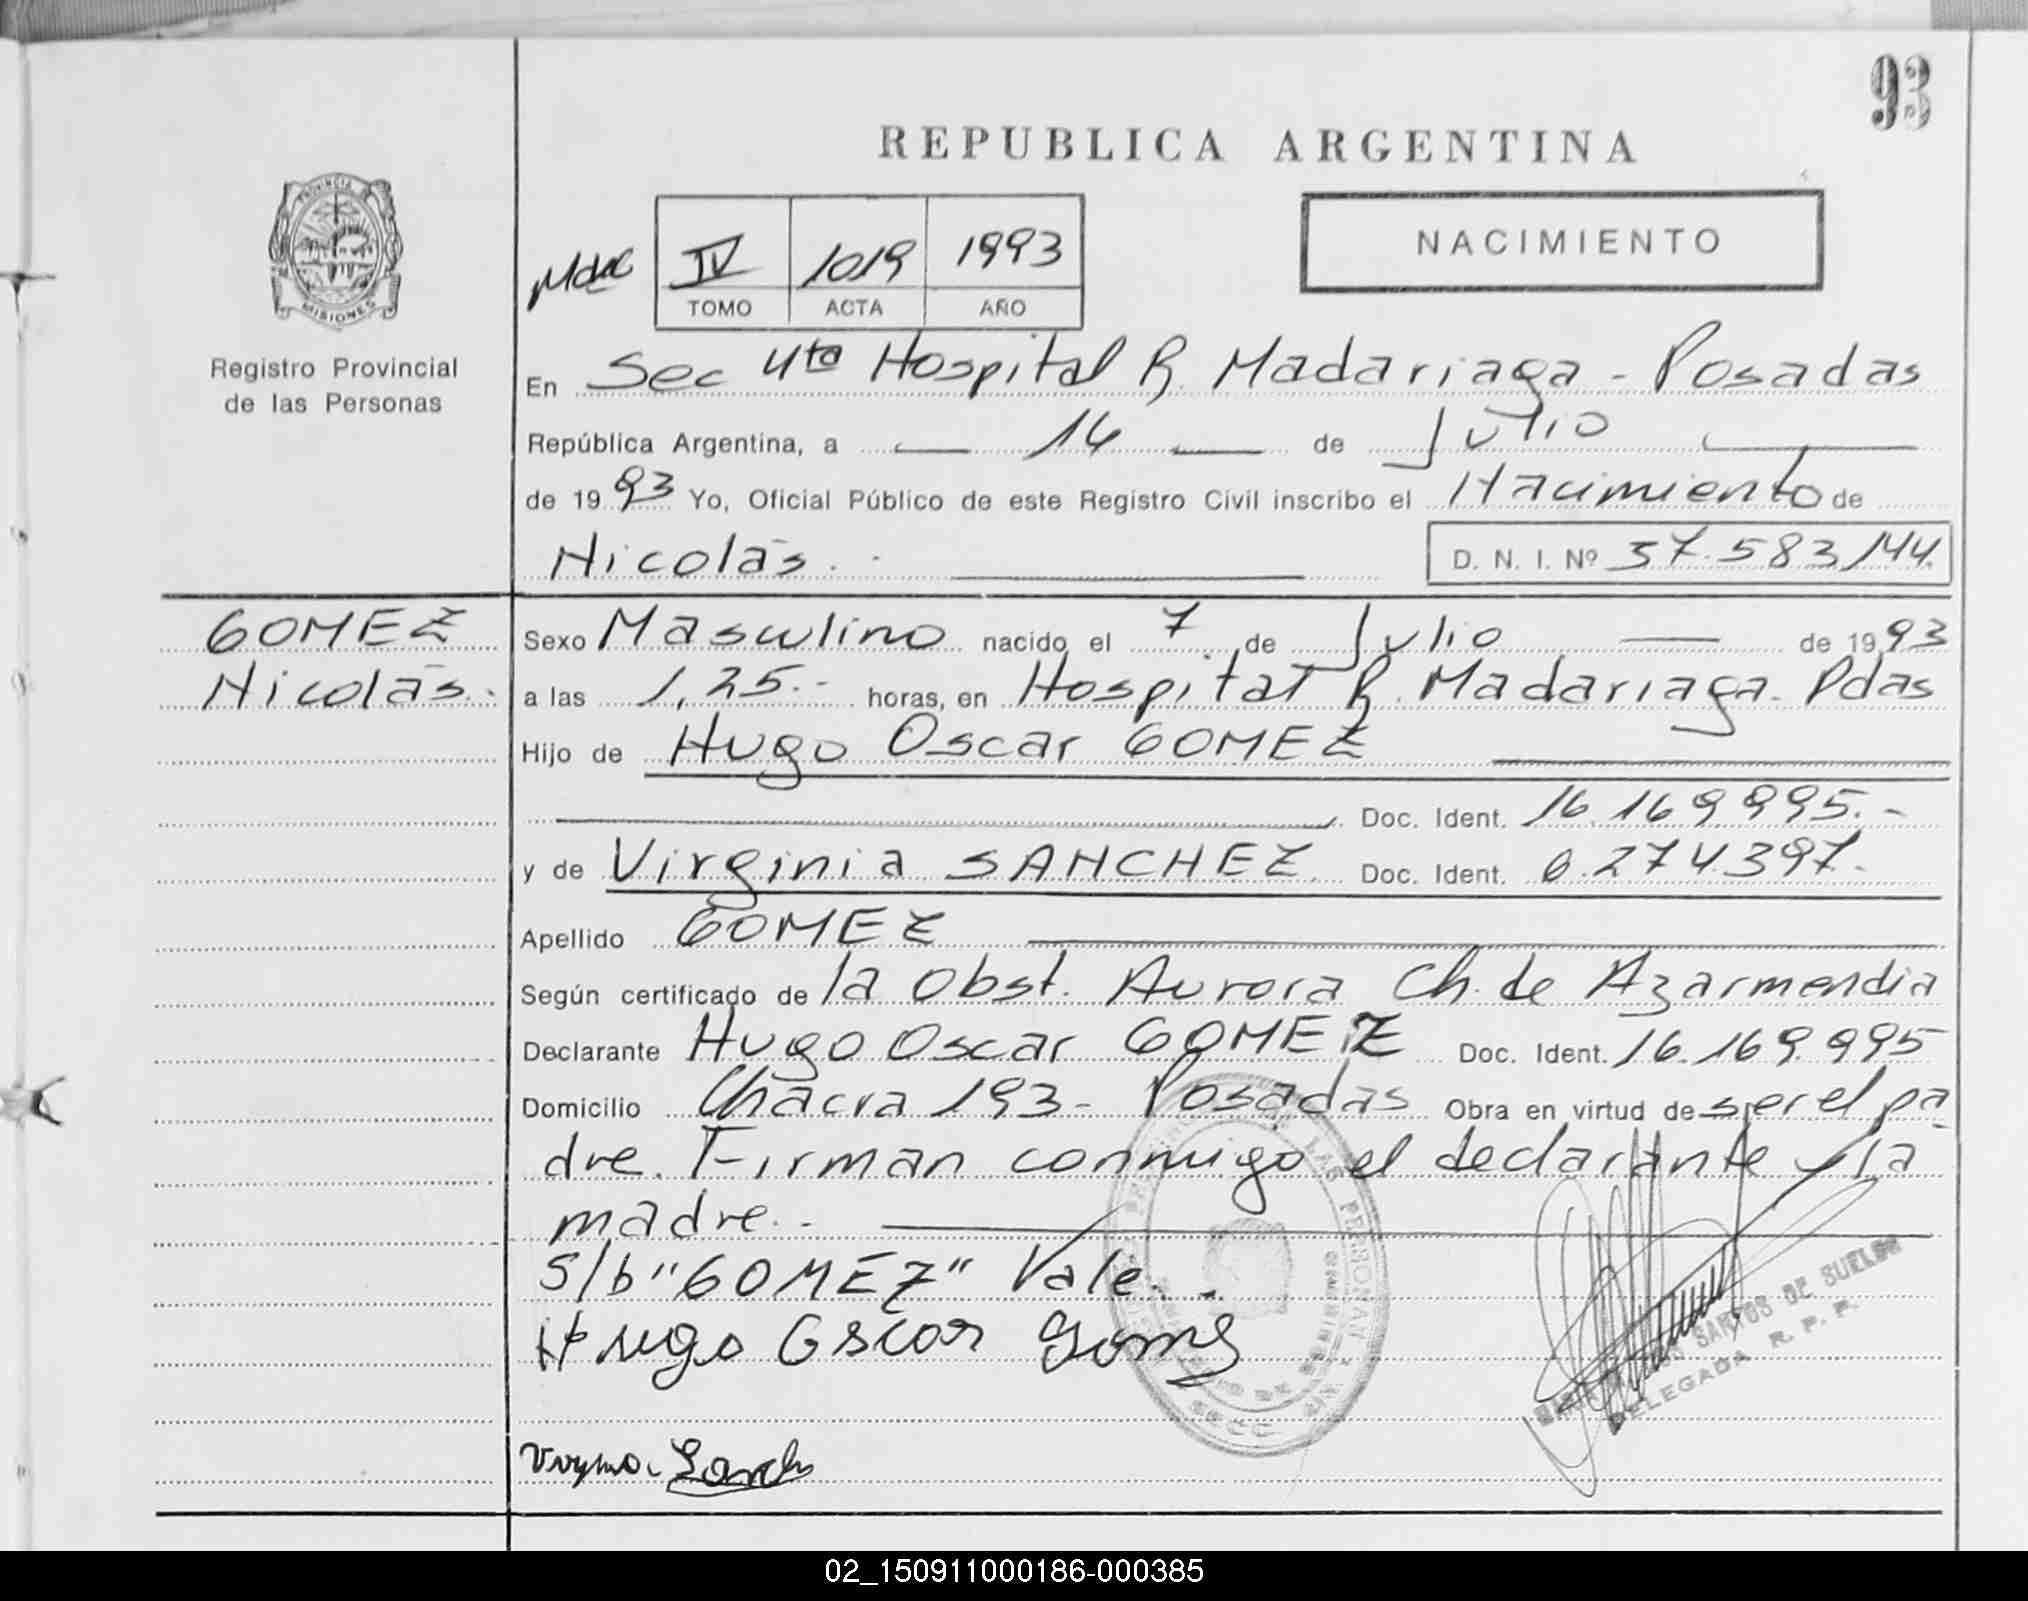 93
REPUBLICA ARGENTINA
PROVINCIA
MISIONES
Registro Provincial
de las Personas
IV 1019 1993
TOMO ACTA AÑO
NACIMIENTO
En Sec 4ta Hospital R. Madariaga - Posadas
República Argentina, a 14 de Julio
de 1993 Yo, Oficial Público de este Registro Civil inscribo el Nacimiento de
Nicolás. D. N. I. Nº 37.583.144.
GOMEZ
Nicolás.
Sexo Masculino nacido el 7 de Julio de 1993
a las 1,25.- horas, en Hospital R. Madariaga. Pdas
Hijo de Hugo Oscar GOMEZ
Doc. Ident. 16.169.995.-
y de Virginia SANCHEZ Doc. Ident. 6.274.397.-
Apellido GOMEZ
Según certificado de la Obst. Aurora Ch. de Azarmendia
Declarante Hugo Oscar GOMEZ Doc. Ident. 16.169.995
Domicilio Chacra 193- Posadas Obra en virtud de ser el pa
dre. Firman conmigo el declarante y la
madre.-
S/b "GOMEZ" Vale.
Hugo Oscar Gomez
SANTOS DE SUELDO
DELEGADA R. P. P.
02_150911000186-000385